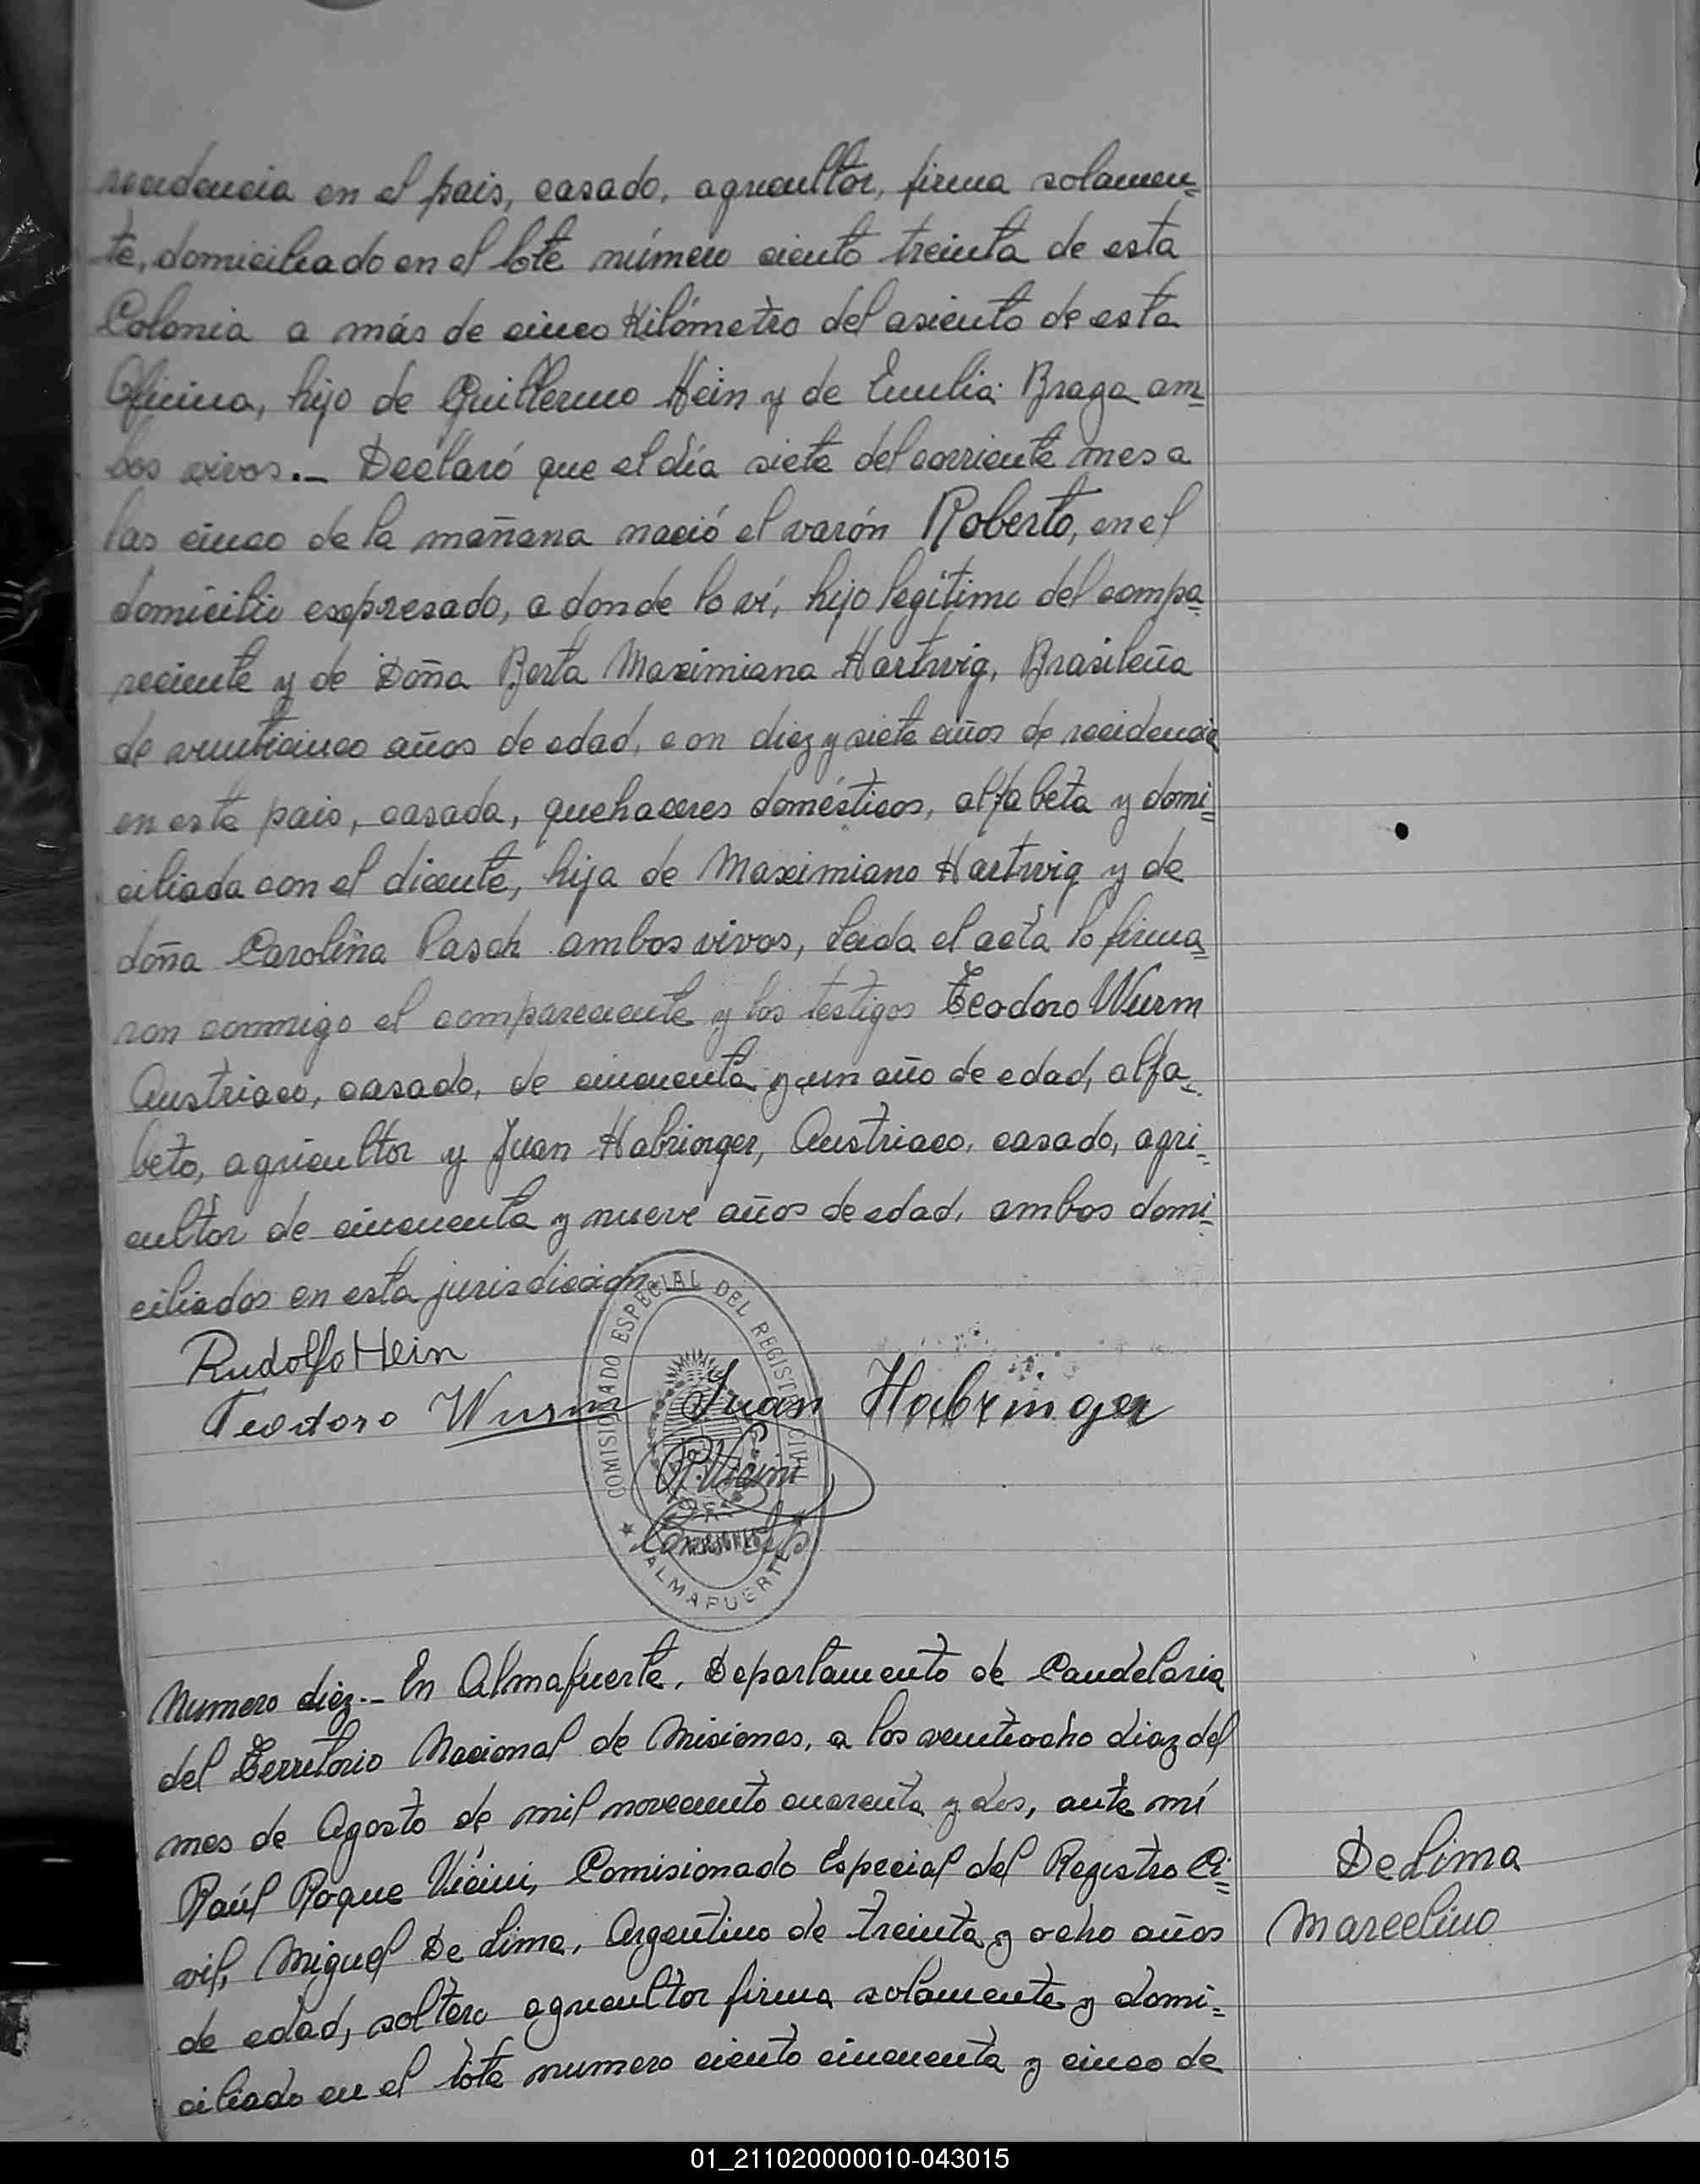 recidencia en el pais, casado, agricultor, firma solamen=
te, domiciliado en el lote número ciento treinta de esta
Colonia a más de cinco Kilómetro del asiento de esta
Oficina, hijo de Guillermo Hein y de Emilia Braga am=
bos vivos.- Declaró que el día siete del corriente mes a
las cinco de la mañana nació el varón Roberto, en el
domicilio esepresado, a donde lo ví, hijo legítimo del compa=
reciente y de Doña Berta Maximiana Hartwig, Brasileña
de veinticinco años de edad, con diez y siete años de recidencia
en este pais, casada, quehaceres domésticos, alfabeta y domi=
ciliada con el dicente, hija de Maximiano Hartwig y de
doña Carolina Pasch ambos vivos, Leida el acta lo firma=
ron conmigo el compareciente y los testigos Teodoro Wurm
Austriaco, casado, de cincuenta y un año de edad, alfa=
beto, agricultor y Juan Habringer, Austriaco, casado, agri=
cultor de cincuenta y nueve años de edad, ambos domi=
ciliados en esta jurisdicción.
Rudolfo Hein
Teodoro Wurm Juan Habringer
COMISIONADO ESPECIAL DEL REGISTRO CIVIL
R. Vicini
ALMAFUERTE
Numero diez.- En Almafuerte, Departamento de Candelaria
del Territorio Nacional de Misiones, a los veintiocho diaz del
mes de Agosto de mil novecientos cuarenta y dos, ante mí
Raúl Roque Vicini, Comisionado Especial del Registro Ci=
vil, Miguel De Lima, Argentino de treinta y ocho años
de edad, soltero agricultor firma solamente y domi=
ciliado en el lote numero ciento cincuenta y cinco de
De Lima
Marcelino
01_211020000010-043015